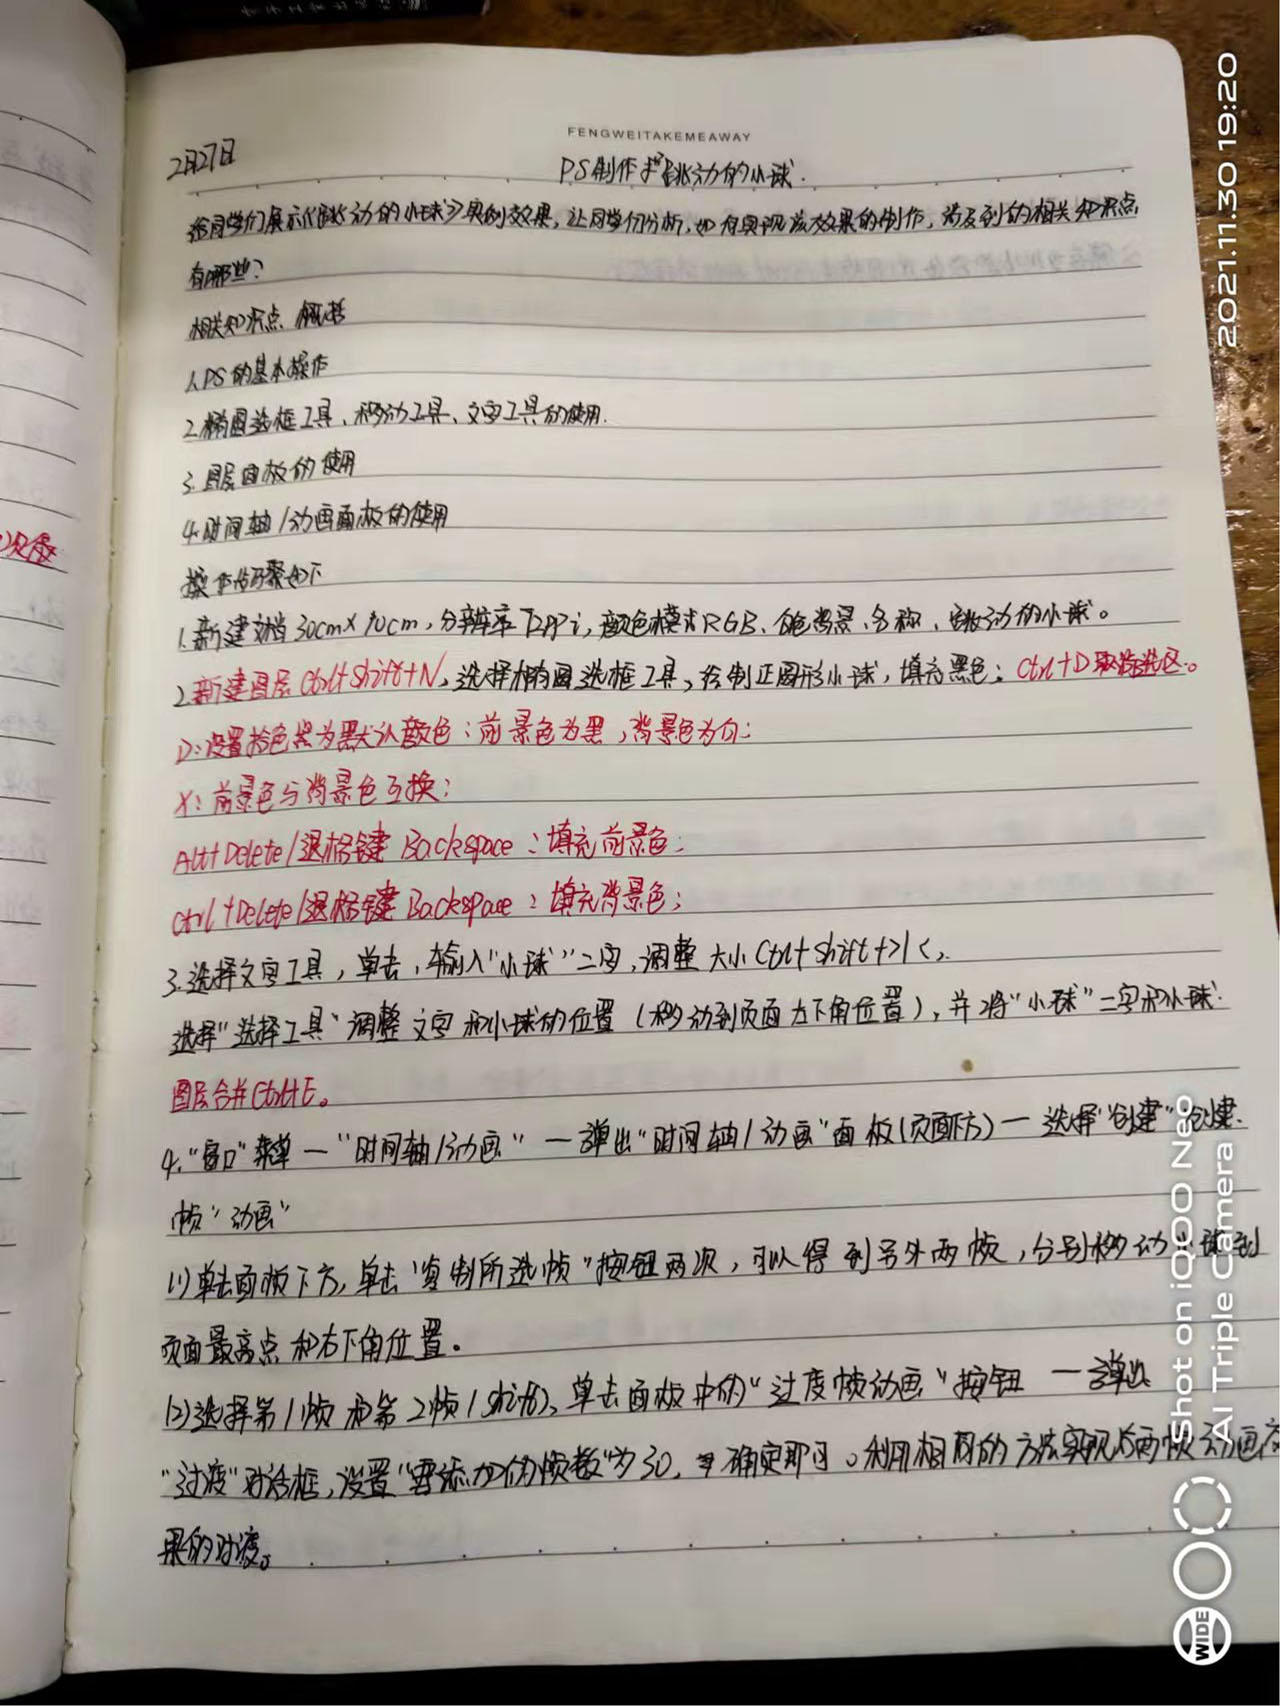 FENGWEITAKEMEAWAY
2月27日
PS制作 跳动的小球.
给同学们展示《跳动的小球》实例效果,让同学们分析,如何实现该效果的制作,涉及到的相关知识点
有哪些?
相关知识点 概括
1.PS的基本操作
2.椭圆选框工具、移动工具、文字工具的使用.
3.图层面板的使用
4.时间轴/动画面板的使用
操作步骤如下
1.新建文档30cm×10cm,分辨率72ppi,颜色模式RGB、白色背景、名称、跳动的小球。
2.新建图层Ctrl+Shift+N,选择椭圆选框工具,绘制正圆形小球,填充黑色;Ctrl+D取消选区。
D:设置拾色器为默认颜色:前景色为黑,背景色为白;
X:前景色与背景色互换;
Alt+Delete/退格键 Backspace:填充前景色;
Ctrl+Delete/退格键 Backspace:填充背景色;
3.选择文字工具,单击,输入"小球"二字,调整大小Ctrl+Shift+>/<,
选择"选择工具"调整文字和小球的位置(移动到页面左下角位置),并将"小球"二字和小球
图层合并Ctrl+E。
4."窗口"菜单—"时间轴/动画"—弹出"时间轴/动画"面板(页面下方)—选择"创建"创建
帧"动画"
(1)单击面板下方,单击"复制所选帧"按钮两次,可以得到另外两帧,分别移动小球到
页面最高点和右下角位置。
(2)选择第1帧和第2帧(shift),单击面板中的"过度帧动画"按钮 —弹出
"过渡"对话框,设置"要添加的帧数"为30,确定即可。利用相同的方法实现后两帧动画效
果的过渡。
2021.11.30 19:20
Shot on iQOO Neo
AI Triple Camera
WIDE